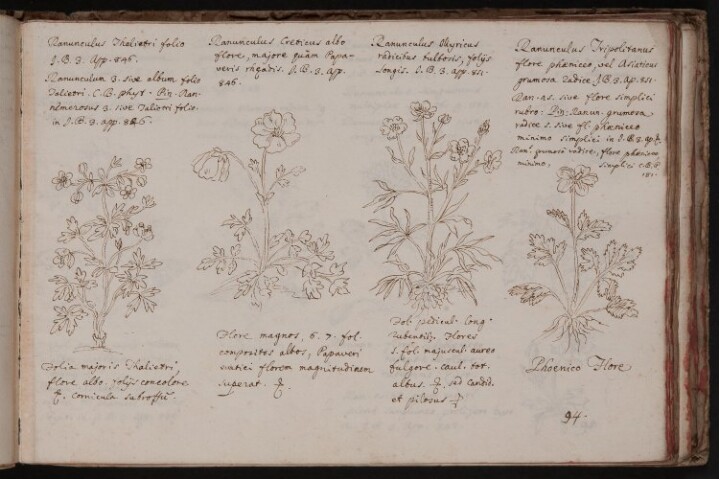 Ranunculus Thalietri folio
J.B. 3. App. 846.
Ranunculum 3. sive album folio
Talietri. C.B. phyt. Pin. Ran-
nemorosus 3. sive Talietri folio
in J.B. 3. app. 846.
Folia majoris Thalietri,
flore albo. folijs concolore
cornicula subruffi
Ranunculus Creticus albo
flore, majore quam Papa-
veris rhæadis. J.B. 3. App.
846.
Flore magnos, 6. 7. fol.
composites albos, Papaveri
florem magnitudinem
superat.
Ranunculus Illyricus
radicibus bulbosis, folijs
longis. J.B. 3. app. 851.
Fol. pedicul. long
flores
s. fol. majuscul. aureo
fulgore. caul. tot.
altus. sed candid.
et pilosus
Ranunculus Tripolitanus
flore phæniceo, vel Asiaticus
grumosa radice J.B. 3. Ap. 851.
Ran. as. sive flore simplici
rubro. Pin: Ranun. grumosa
radice s. sive fl. phæniceo
minimo simplici in J.B. 3. ap.
Ran. grumosi radice, flore phæniceo
minimo, simplici C.B.
851.
Phoenico Flore
94.